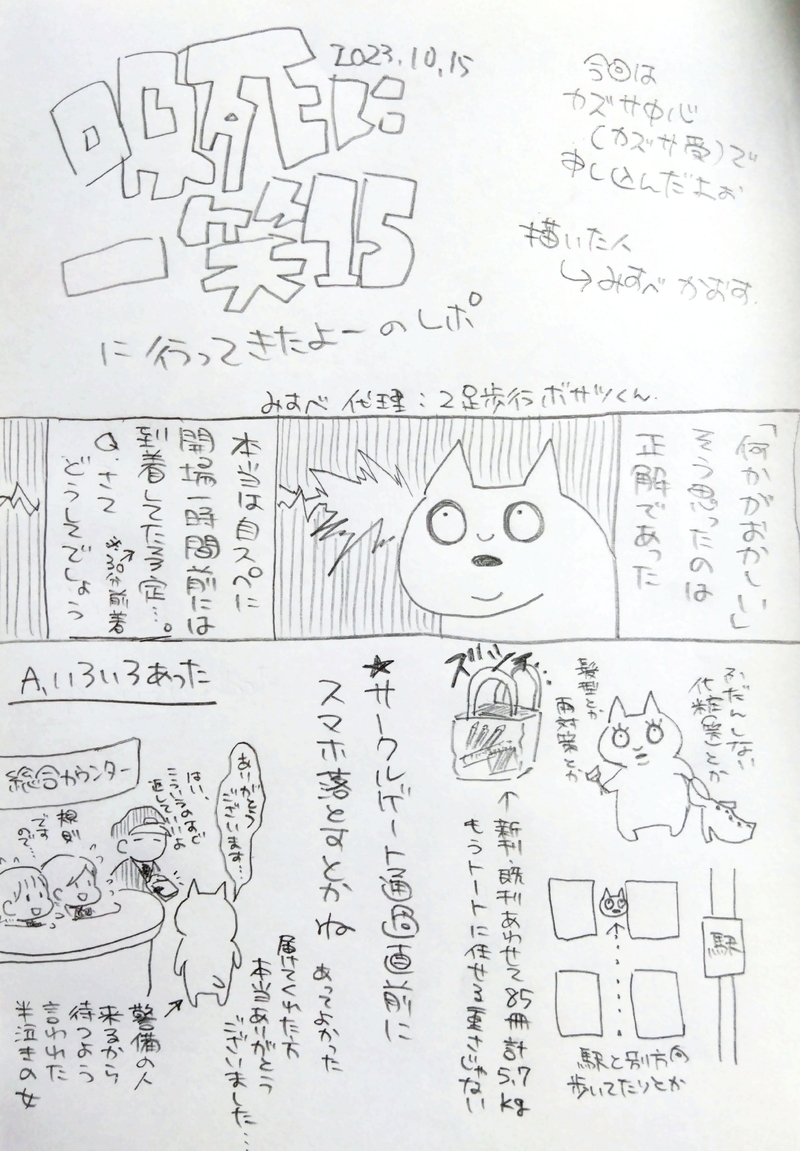 2023.10.15
咽死に
一笑15
に行ってきたよーのレポ
今回は
カズサ中心
(カズサ受)で
申し込んだよぉ
描いた人
↳みすべ かおす.
みすべ 代理:2足歩行ボサツくん.
「何かがおかしい」
そう思ったのは
正解であった
本当は自スペに
開場一時間前には
到着してた予定…。
↗
※30分前着
Q.さて
どうしてでしょう
A.いろいろあった
ふだんしない
化粧(笑)とか
髪型とか
雨対策とか
駅
駅と別方向
歩いてたりとか
ズッシ…
↑新刊・既刊あわせて85冊計5.7kg
もうトートに任せる重さじゃない
★サークルゲート通過直前に
スマホ落とすとかね
あってよかった
届けてくれた方
本当ありがとう
ございました…
ありがとう
ございます…
はい、
こういうわけで
返していいよ
規則
ですので…
総合カウンター
警備の人
来るから
待つよう
言われた
半泣きの女